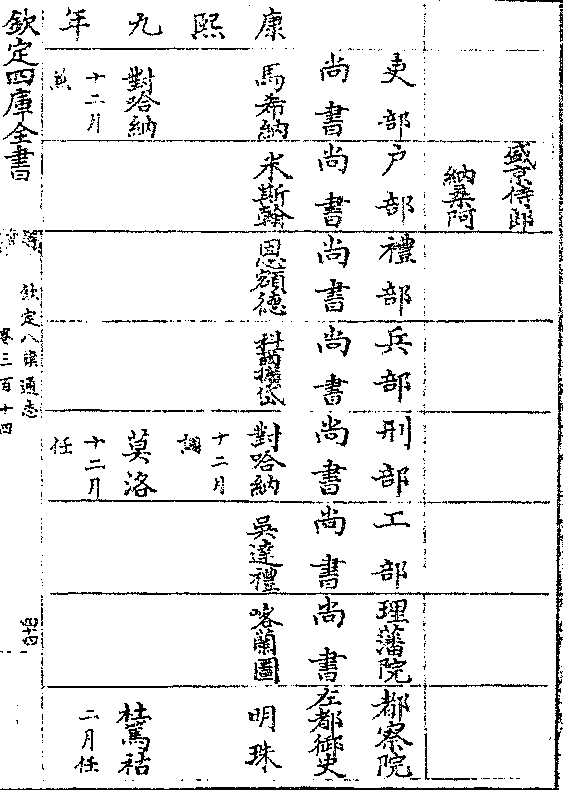 盛京侍郎
納桑阿
康熙九年
吏部
尚書
馬希納
對哈納
十二月
户部
尚書
米斯翰
禮部
尚書
恩額德
兵部
尚書
刑部
尚書
對哈納
十二月
調
莫洛
十二月
任
工部
尚書
吳達禮
理藩院
尚書
喀蘭圖
都察院
左都御史
明珠
杜篤祜
二月任
欽定四庫全書
欽定八旗通志
卷三百十四